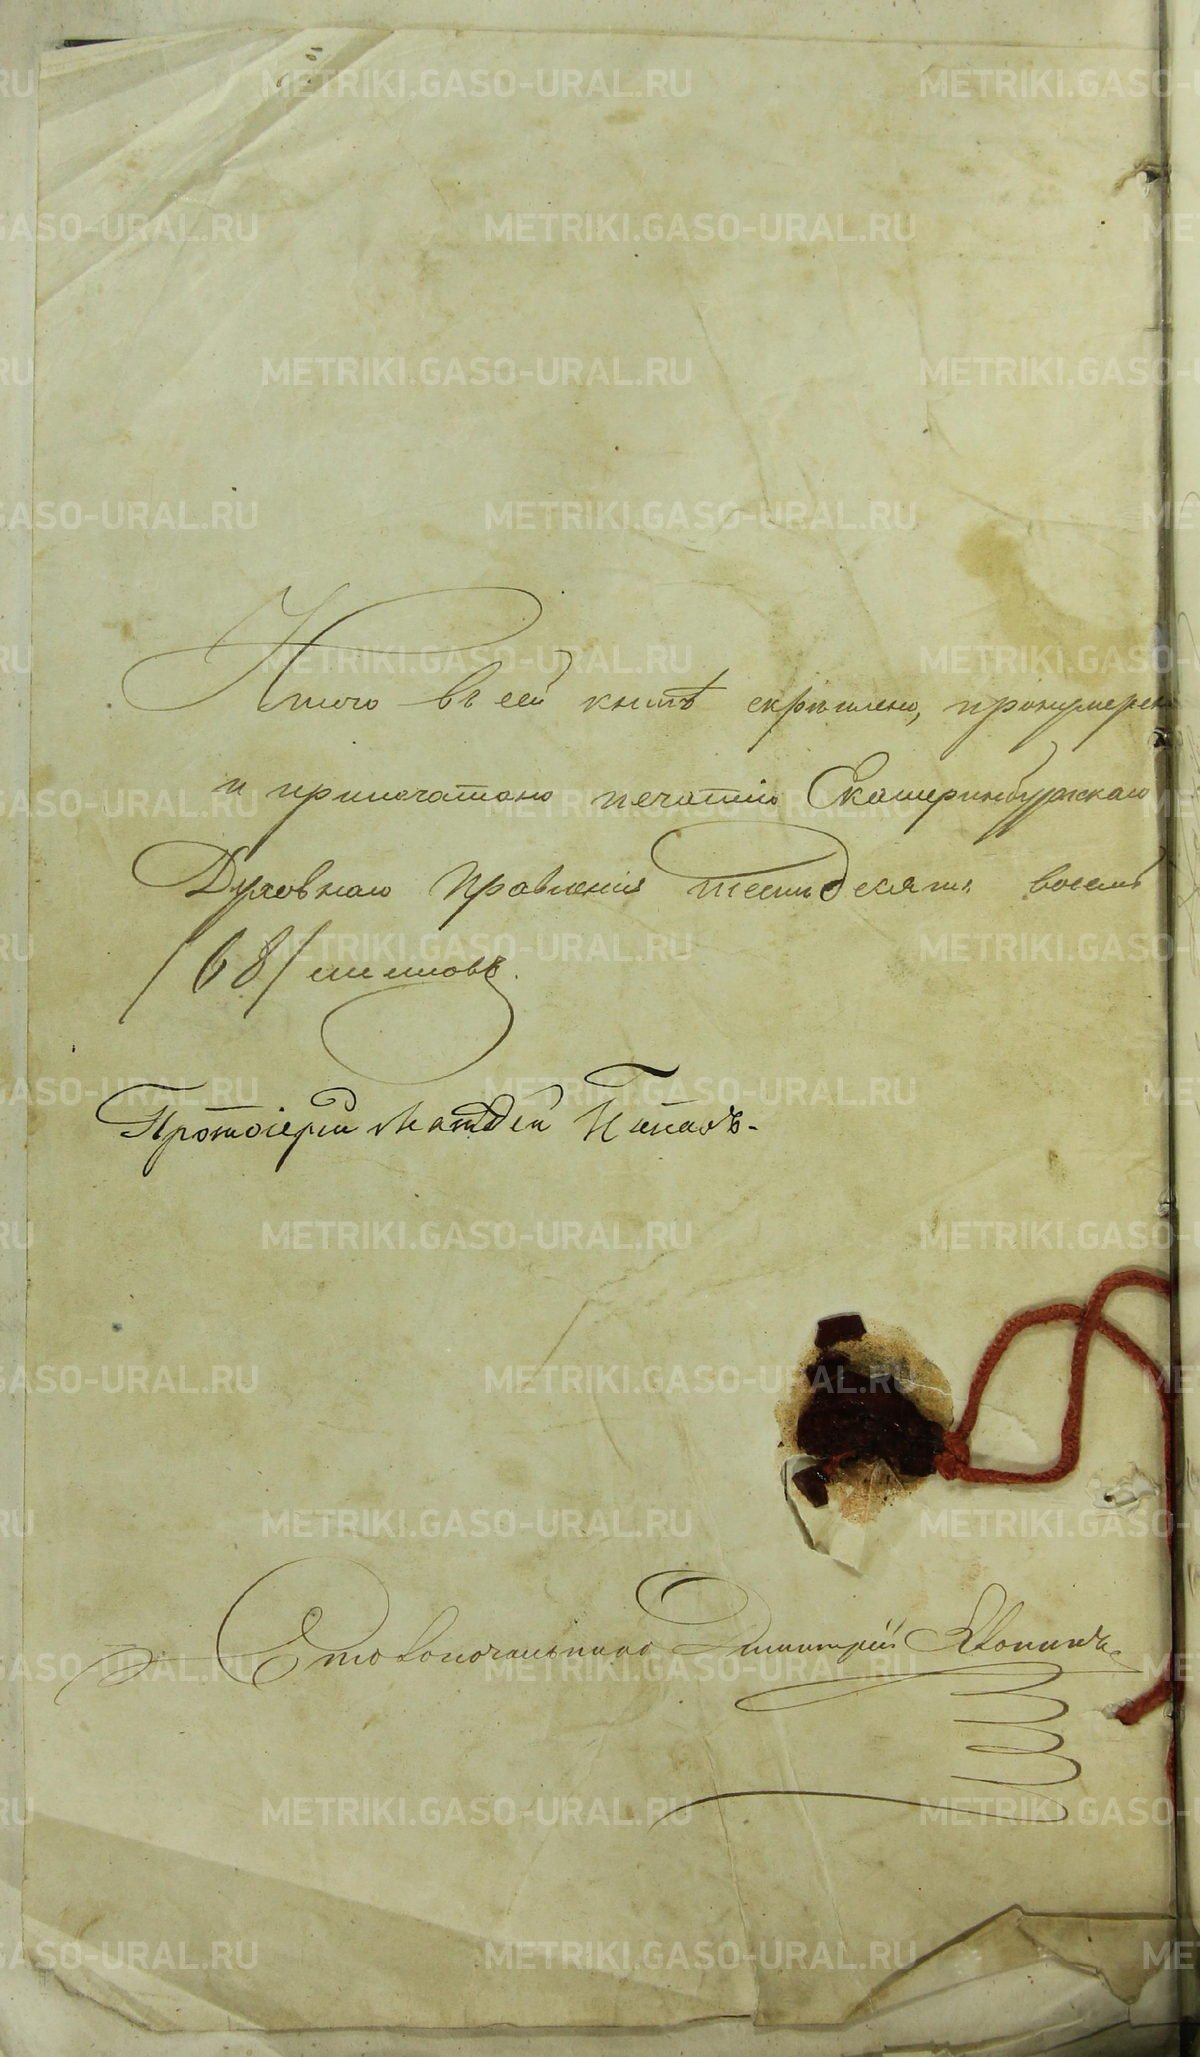 Итого въ сей книгѣ скрѣплено, пронумерено
и припечатано печатію Екатеринбургскаго
Духовнаго Правленія шестьдесятъ восемь
/68/ листовъ.
Протоіерей Матвей
Столоначальникъ Дмитрій
METRIKI.GASO-URAL.RU